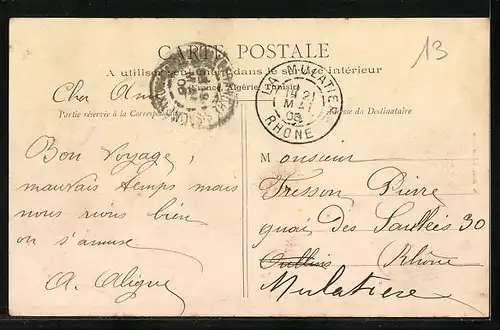 CARTE POSTALE
13
A utiliser seulement dans le service intérieur
France, Algérie, Tunisie
Cher Ami
Partie réservée à la Correspondance
Adresse du Destinataire
LA MULATIERE
RHONE
Bon voyage,
mauvais temps mais
nous rions bien
on s'amuse
A. Aligne
Monsieur
Tresson Pierre
quai des Saulées 30
Oullins Rhône
Mulatiere